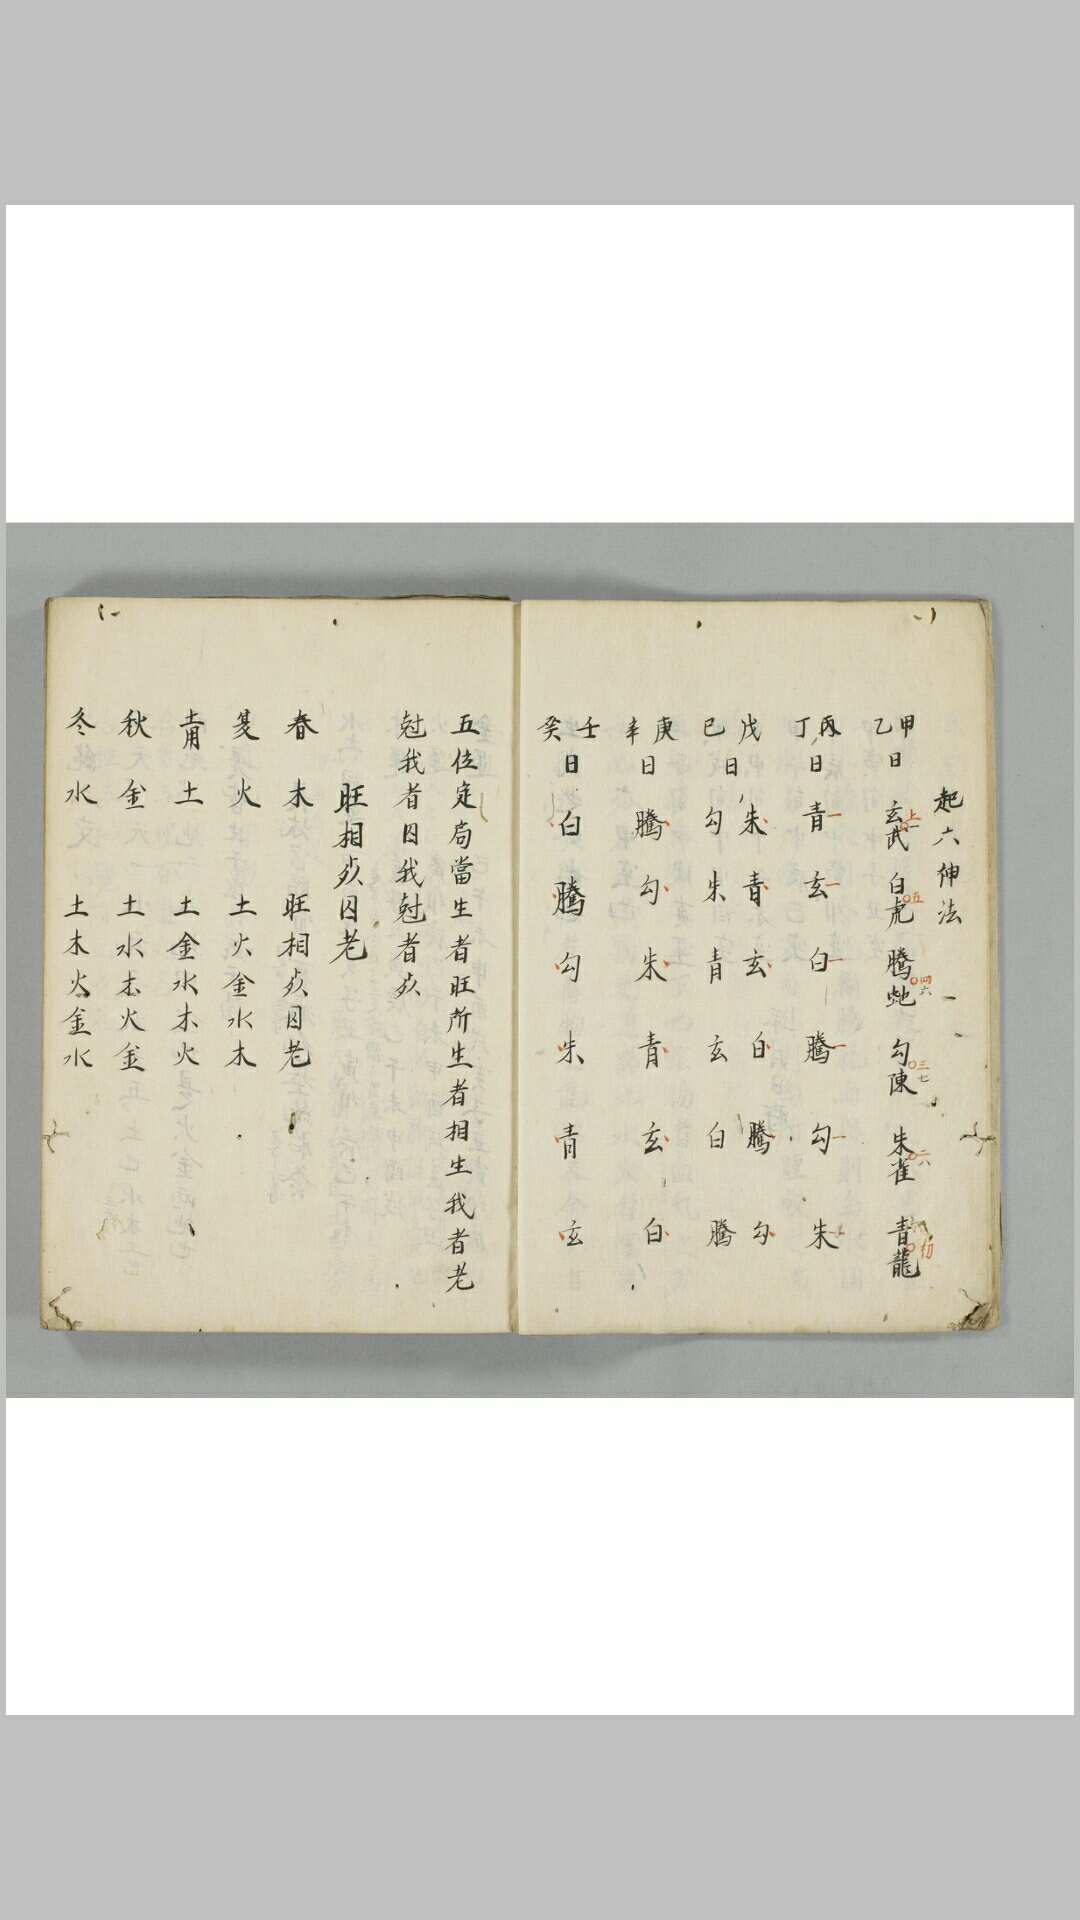 起六伸法
甲乙日 玄武 白虎 騰蛇 勾陳 朱雀 青龍
上一 五 四六 三七 二八 初
丙丁日 青 玄 白 騰 勾 朱
戊日 朱 青 玄 白 騰 勾
己日 勾 朱 青 玄 白 騰
庚辛日 騰 勾 朱 青 玄 白
壬癸日 白 騰 勾 朱 青 玄
五位定局當生者旺所生者相生我者老
尅我者囚我尅者
旺相 囚老
春 木 旺相 囚老
夏 火 土火金水木
土 土金水木火
秋 金 土水木火金
冬 水 土木火金水